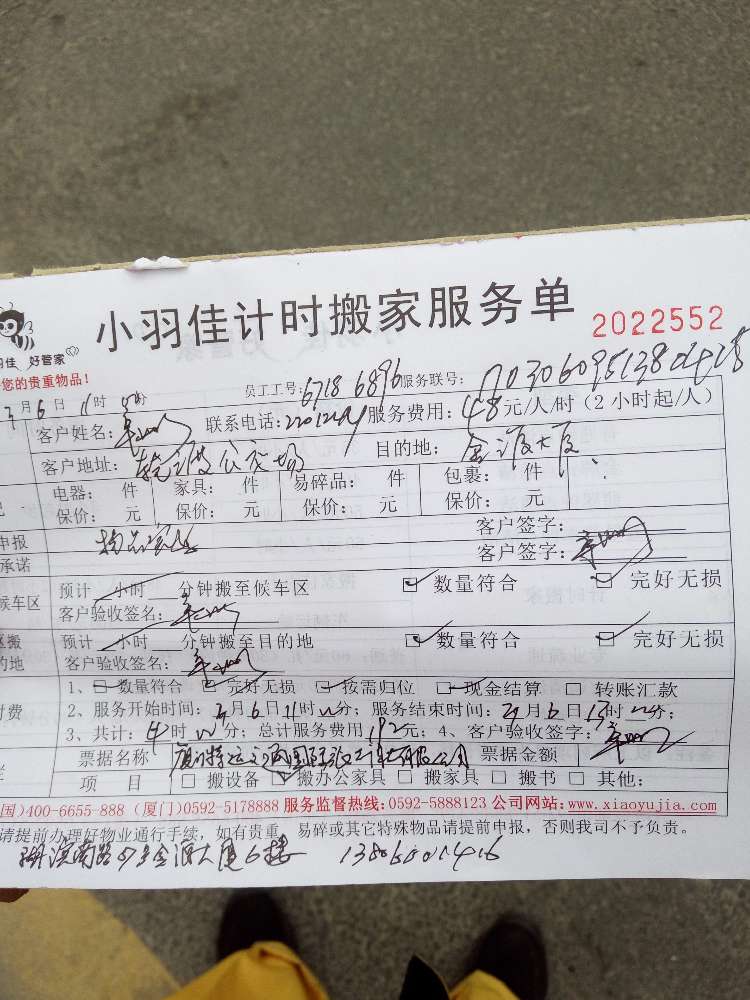 小羽佳计时搬家服务单 2022552
好管家
您的贵重物品！
员工工号：6718 6896 服务联号：
月6日11时 分
客户姓名： 联系电话： 服务费用：48元/人/时（2小时起/人）
客户地址： 公交场 目的地：金源大厦
电器： 件 家具： 件 易碎品： 件 包裹： 件
保价： 元 保价： 元 保价： 元 保价： 元
申报 客户签字：
承诺 客户签字：
候车区 预计 小时 分钟搬至候车区 数量符合 完好无损
客户验收签名：
预计 小时 分钟搬至目的地 数量符合 完好无损
的地 客户验收签名：
1、数量符合 完好无损 按需归位 现金结算 转账汇款
付费 2、服务开始时间： 月6日11时 分；服务结束时间： 月6日15时 分；
3、共计：4时 分；总计服务费用192元；4、客户验收签字：
票据名称 票据金额
项 目 搬设备 搬办公家具 搬家具 搬书 其他：
国)400-6655-888 (厦门)0592-5178888 服务监督热线:0592-5888123 公司网站:www.xiaoyujia.com
请提前办理好物业通行手续，如有贵重、易碎或其它特殊物品请提前申报，否则我司不予负责。
湖滨南路 金源大厦6楼